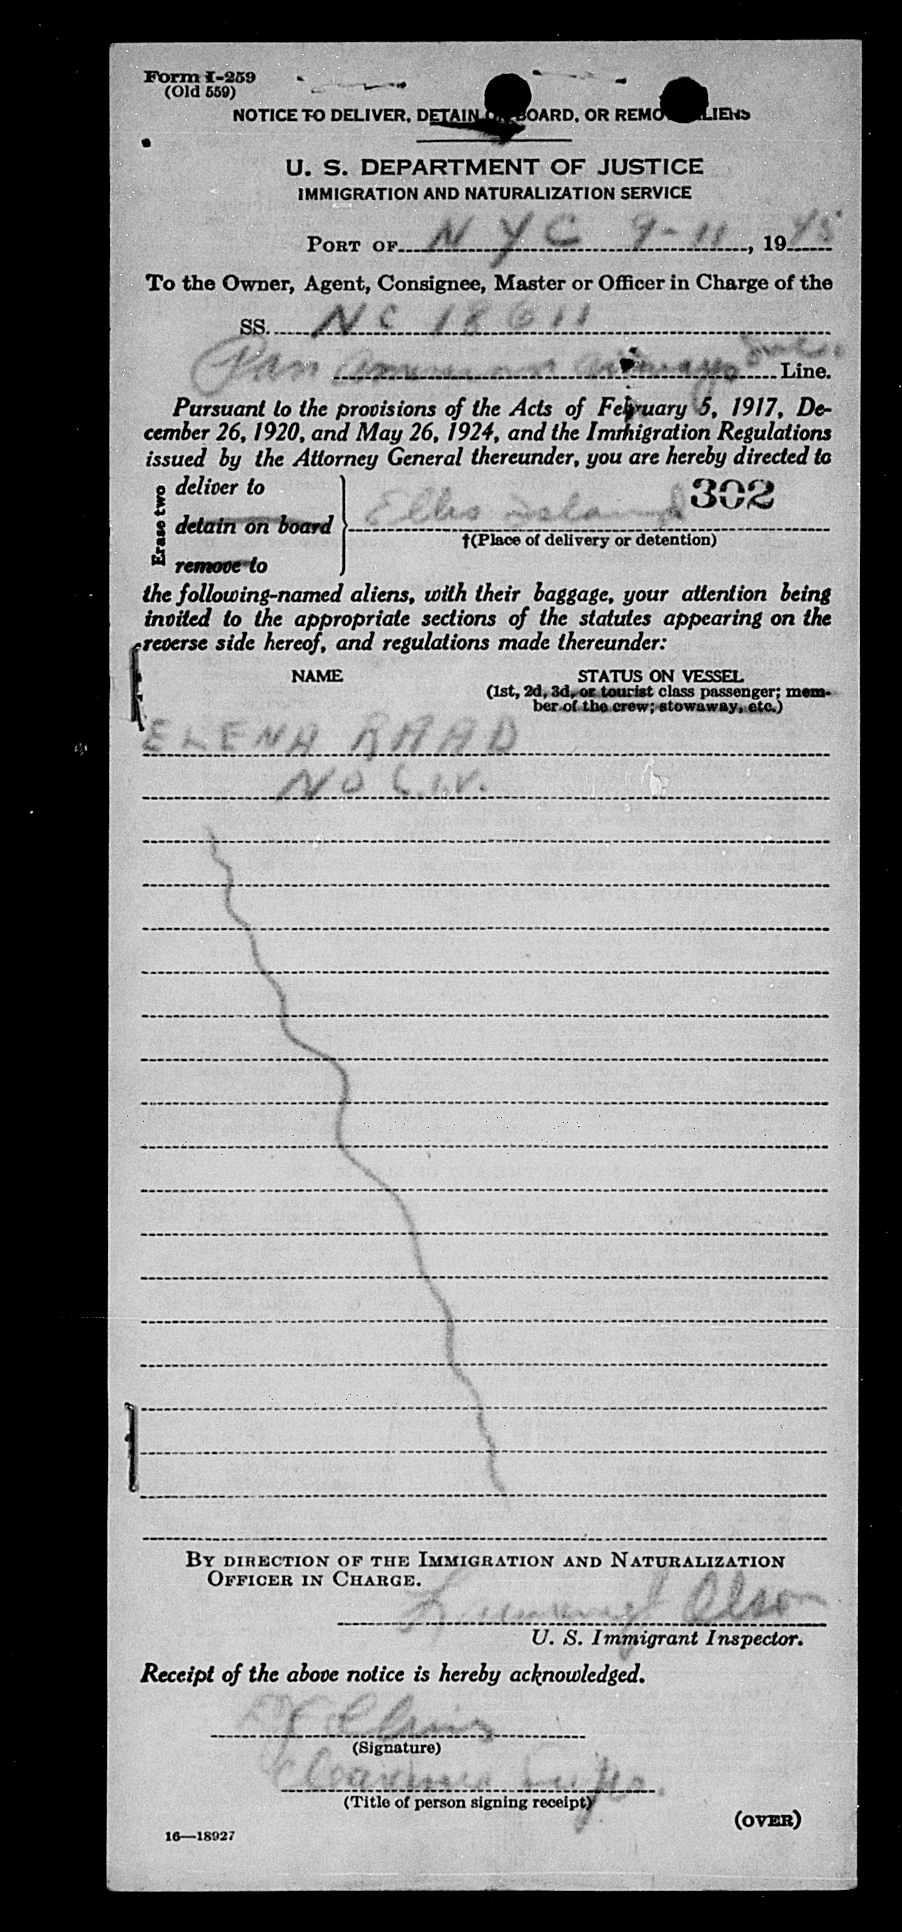 Form I-259
(Old 559)
NOTICE TO DELIVER, DETAIN ON BOARD, OR REMOVE ALIENS
U. S. DEPARTMENT OF JUSTICE
IMMIGRATION AND NATURALIZATION SERVICE
PORT OF NYC 9-11, 1945
To the Owner, Agent, Consignee, Master or Officer in Charge of the
SS. NC 18611
Pan American Airways Inc. Line.
Pursuant to the provisions of the Acts of February 5, 1917, De-
cember 26, 1920, and May 26, 1924, and the Immigration Regulations
issued by the Attorney General thereunder, you are hereby directed to
Erase two
deliver to
detain on board
remove to
Ellis Island 302
†(Place of delivery or detention)
the following-named aliens, with their baggage, your attention being
invited to the appropriate sections of the statutes appearing on the
reverse side hereof, and regulations made thereunder:
NAME STATUS ON VESSEL
(1st, 2d, 3d, or tourist class passenger; mem-
ber of the crew; stowaway, etc.)
ELENA RAAD
NO C.I.V.
BY DIRECTION OF THE IMMIGRATION AND NATURALIZATION
OFFICER IN CHARGE.
Olson
U. S. Immigrant Inspector.
Receipt of the above notice is hereby acknowledged.
(Signature)
Clearance
(Title of person signing receipt)
(OVER)
16—18927